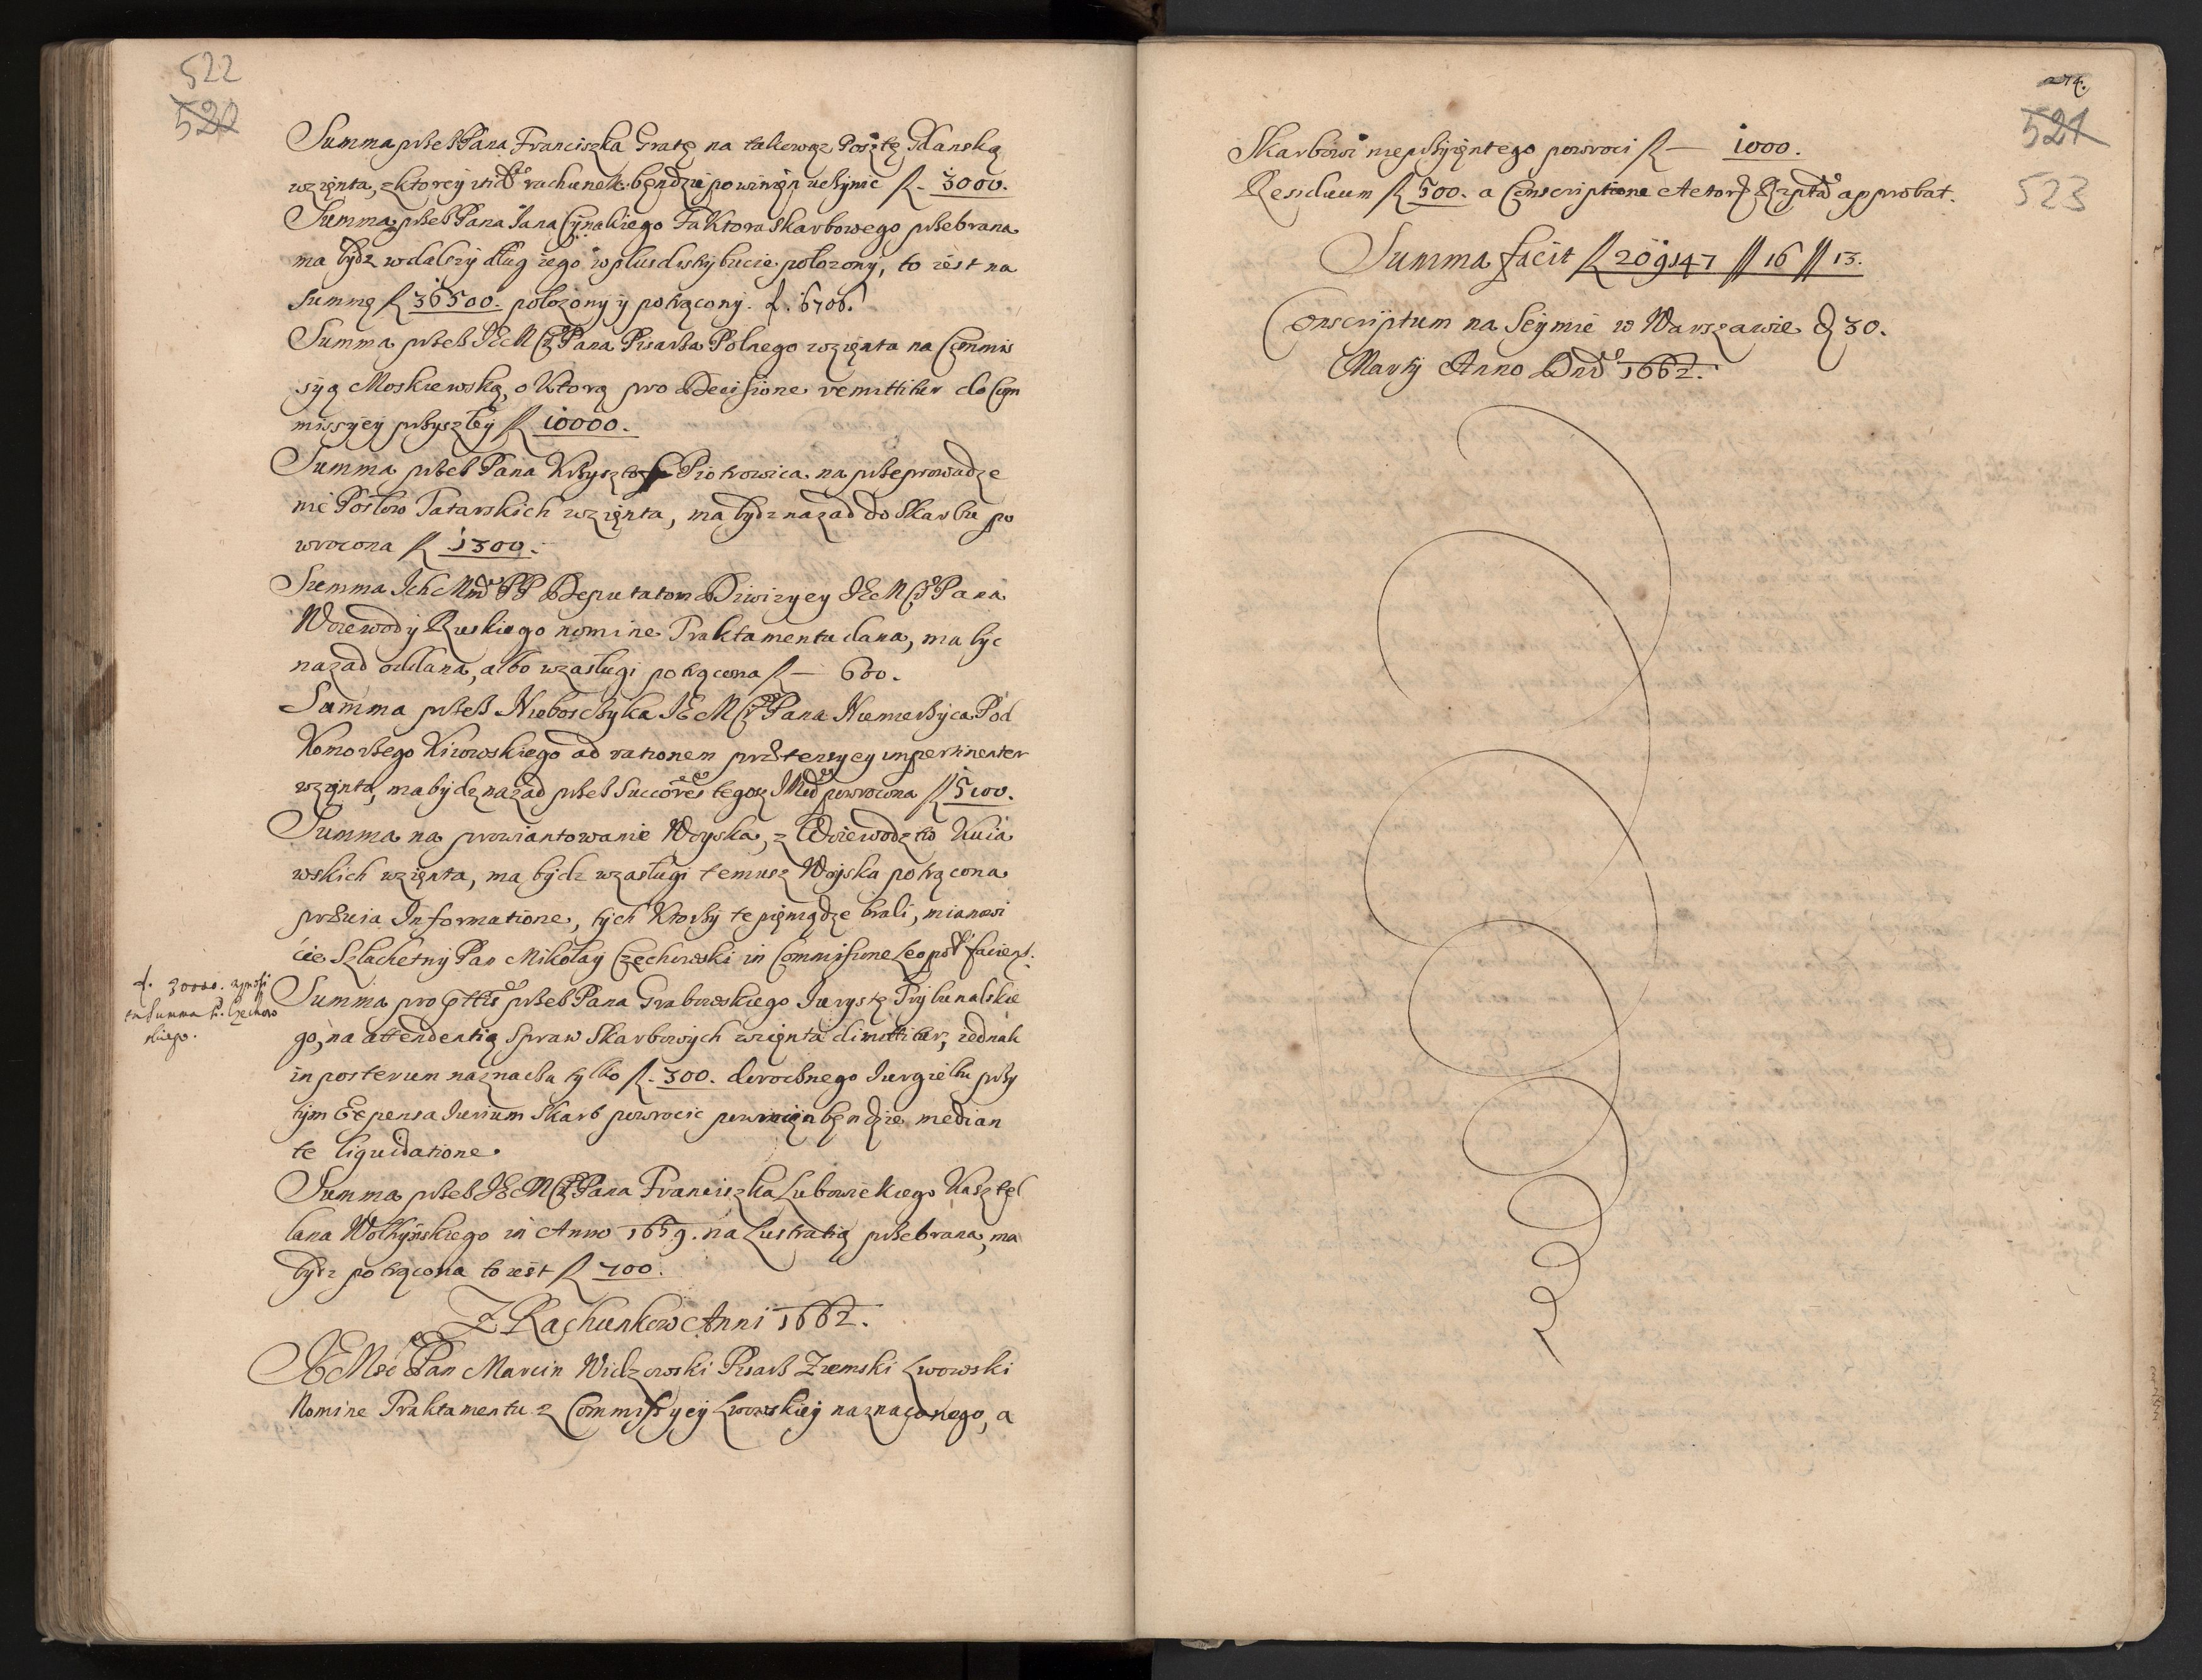 522
520
Summa przez Pana Franciszka Gratę na takowąz Posztę Gdanską
wzięnta, z ktorey rachunek będzie powinięn uczynić fl. 3000.
Summa przez Pana Jana Faktora Skarbowego przebrana
ma bydz w dalszy dług iego w plus distrybucie położony, to iest na
summę fl 36500. położony y potrącony. f. 6706.
Summa przez JEMCi Pana Pisarza Polnego wzięnta na Commis
syą Moskiewską, o ktorą pro Decisione remittitur do Com
missyey przyszłey fl 10000.
Summa przez Pana Krzysztofa Piotrowica na przeprowadze
nie Posłow Tatarskich wzięnta, ma bydz nazad do Skarbu po
wrocona fl 1300.
Summa Ich PP Deputatom Diwizyey JEMCi Pana
Woiewody Ruskiego nomine Traktamentu dana, ma byc
nazad oddana, albo w zasługi potrącona fl — 600.
Summa przez Nieboszczyka JEMCi Pana Niemierzyca Pod
Komorzego Kiiowskiego ad rationem prætensyey impertinenter
wzięnta, ma bydz nazad przez Succores tegosz powrocona fl 5100.
Summa na prowiantowanie Woyska, z Woiewodztw Kuia
wskich wzięnta, ma bydz w zasługi temusz Woysku potrącona
prævia Informatione, tych ktorzy te pięniądze brali, mianowi
cie Szlachetny Pan Mikołay Czechowski in Commissione
f. 30000.
ta Summa P. Czechow
skiego.
Summa pro przez Pana Grabowskiego Iurystę Trybunalskie
go, na attendentią Spraw Skarbowych wzięnta dimittitur, iednak
in posterum naznacza tylko fl. 300. dorocznego Iurgieltu przy
tym Expensa Iurium Skarb powrocic powinięn będzie median
te liquidatione.
Summa przez JEMCi Pana Franciszka Lubowickiego Kasztel
lana Wołhyńskiego in Anno 1659. na Lustratią przebrana, ma
bydz potrącona to iest fl 700.
Z Rachunkow Anni 1662.
JEMsc Pan Marcin Widzowski Pisarz Ziemski Lwowski
Nomine Traktamentu z Commissyey Lwowskiey naznaczonego, a
274.
521
523
Skarbowi nieprzyięntego powroci fl — 1000.
Residuum fl 500. a Conscriptione approbat.
Summa facit fl 209147 // 16 // 13.
Conscriptum na Seymie w Warszawie D 30.
Martij Anno Dni 1662.